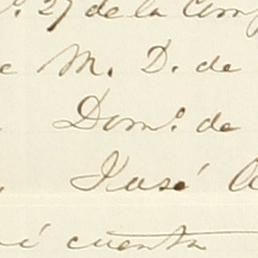 27 de la Comp
M. D. de
Dom.º de
José
mi cuenta